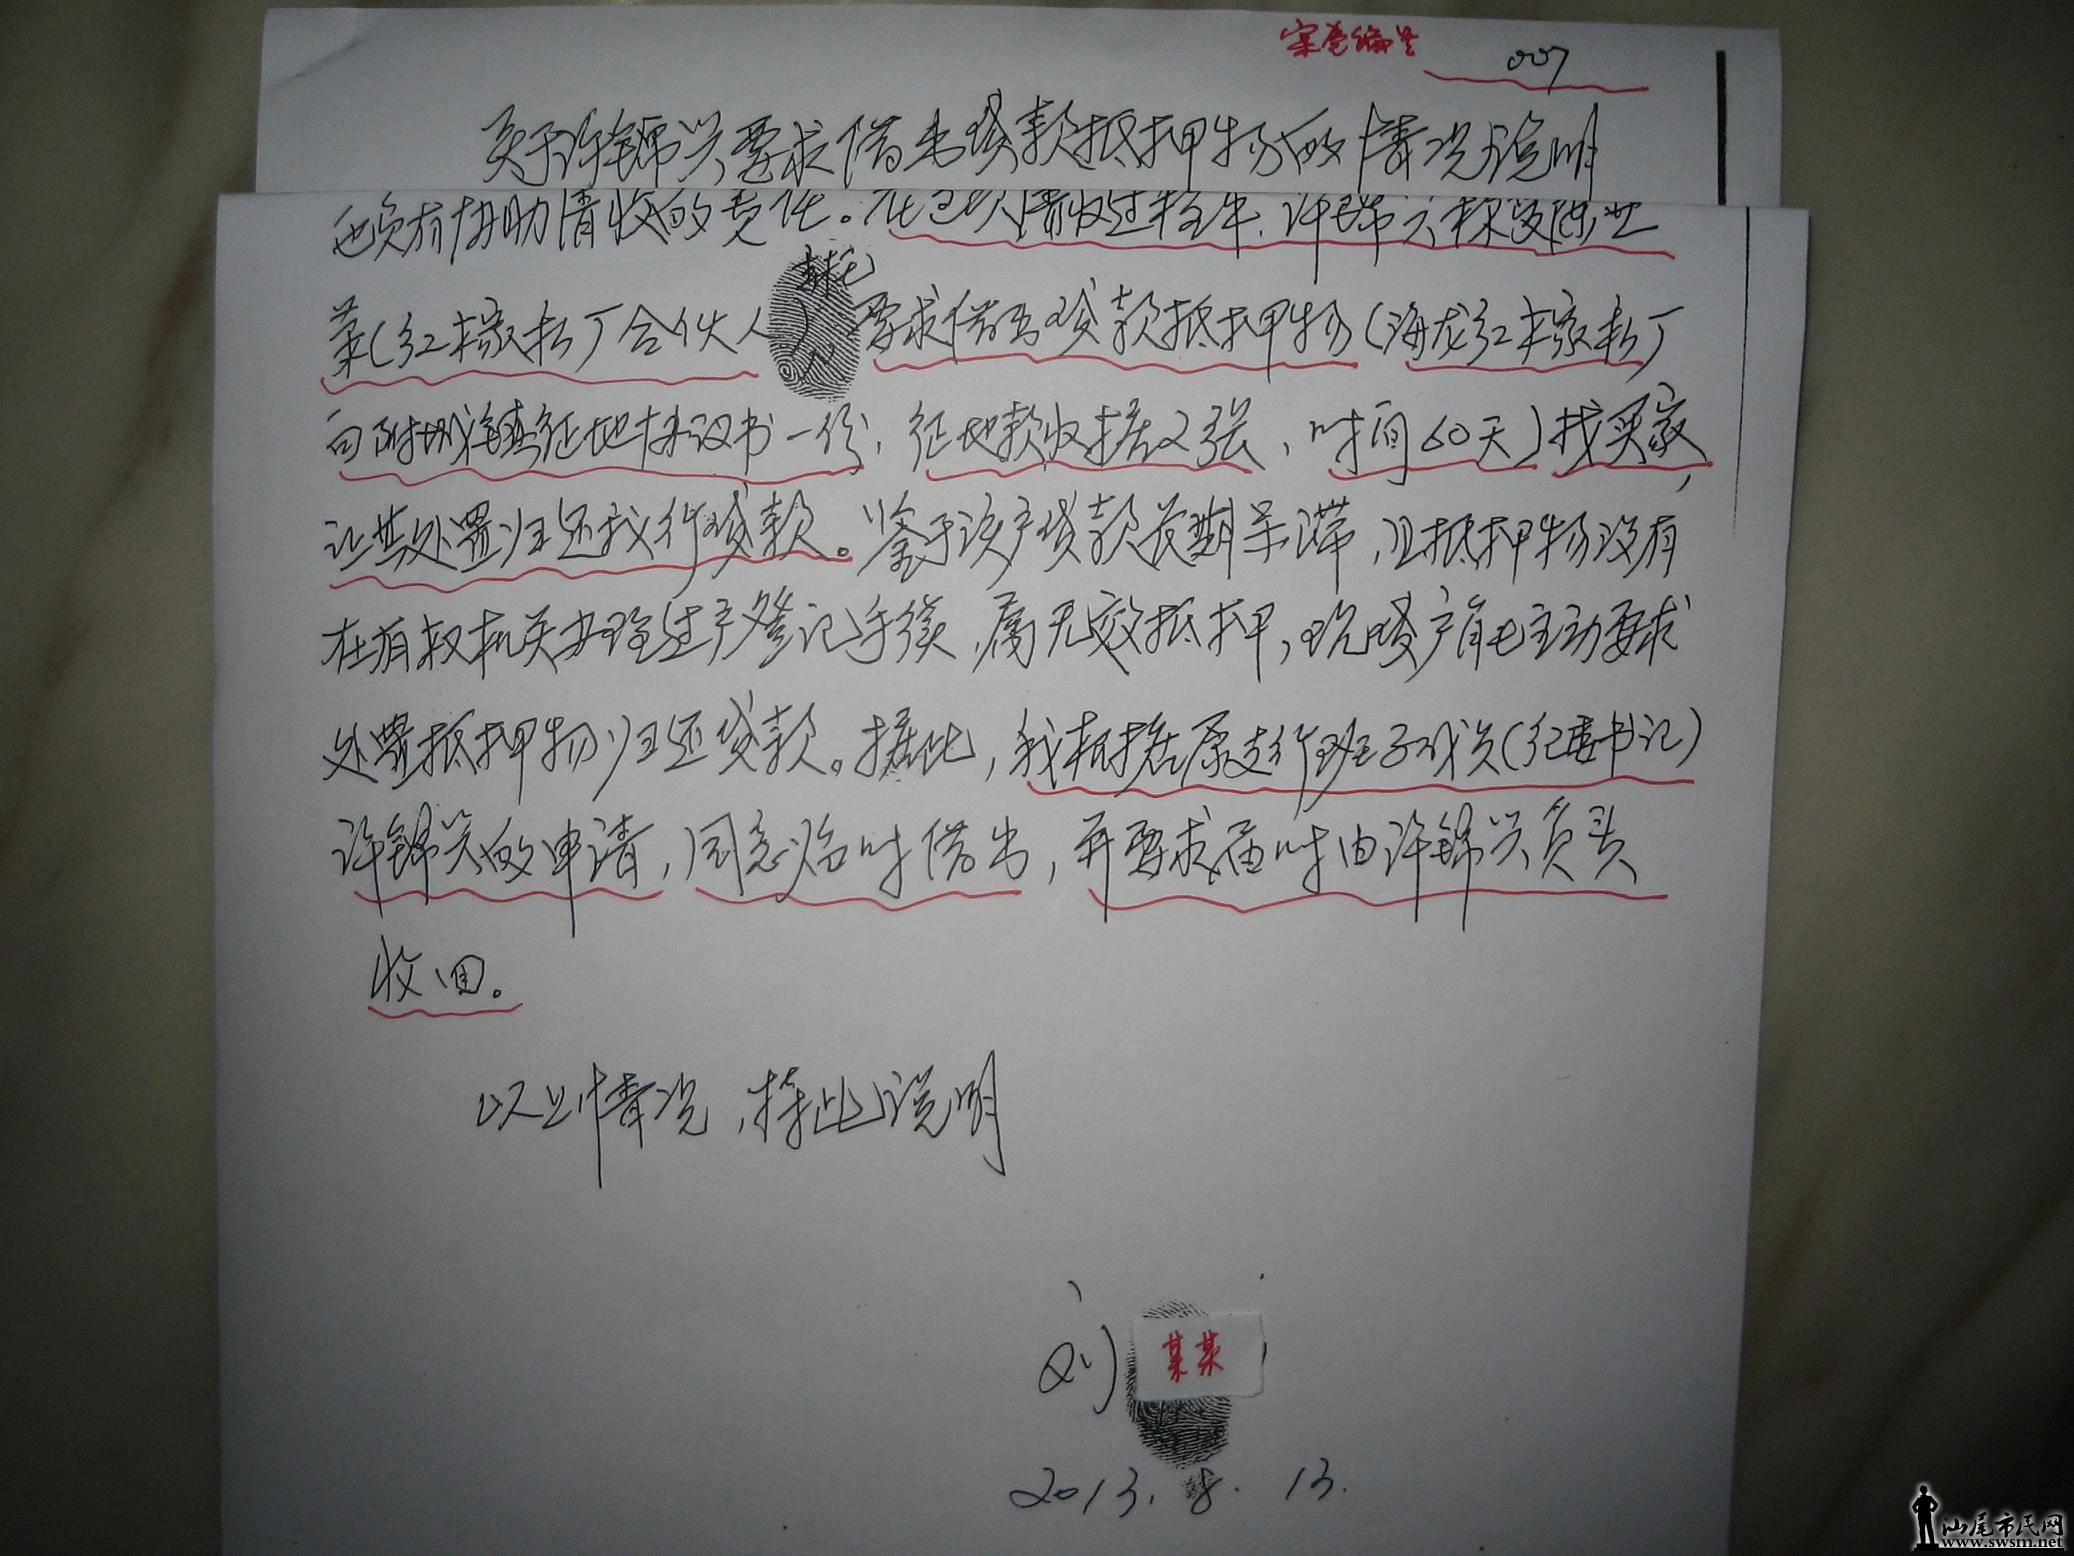 案卷编号 007
关于许锦兴要求借出贷款抵押物的情况说明
也负有协助清收的责任。在已清收过程中,许锦兴接受陈业
菜(红橡杉厂合伙人)委托要求借出贷款抵押物(海龙红橡杉厂
向附城镇征地协议书一份,征地款收据2张,时间60天)找买家,
让其处置归还我行贷款。鉴于该户贷款长期呆滞,且抵押物没有
在有权机关办理过户登记手续,属无效抵押,现贷户自己主动要求
处置抵押物归还贷款。据此,我根据原支行班子成员(纪委书记)
许锦兴的申请,同意临时借出,并要求届时由许锦兴负责
收回。
以上情况,特此说明
刘某某
2013.8.13.
汕尾市民网
www.swsm.net